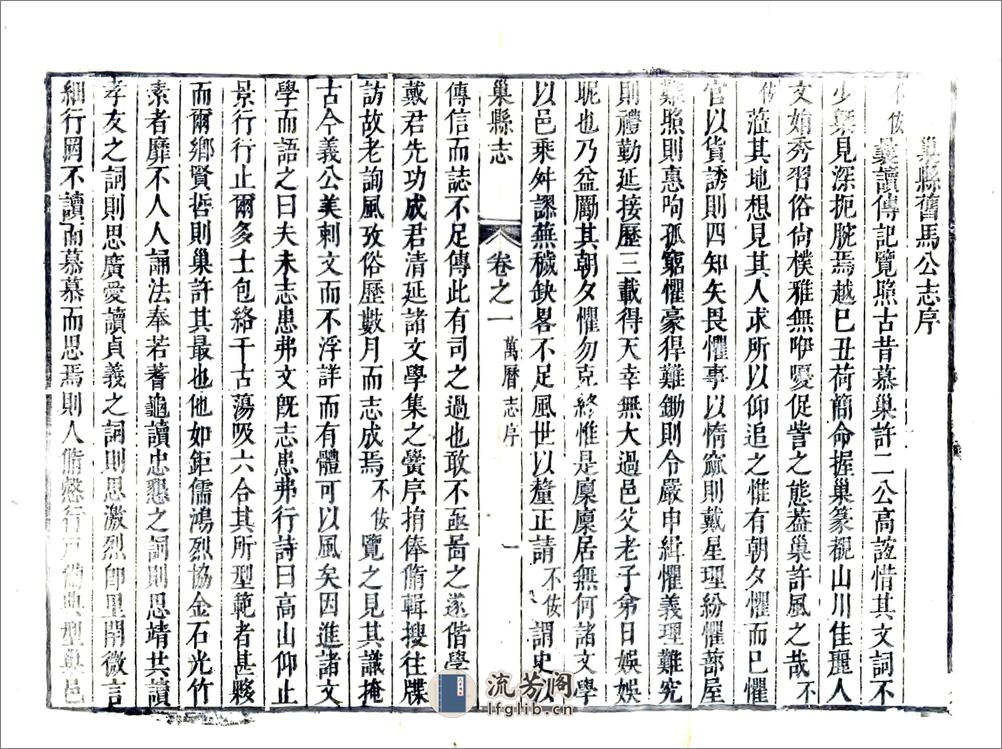 巢縣舊馬公志序
不佞曩讀傳記覽照古昔慕巢許二公高誼惜其文詞不
少槩見深扼腕焉越巳丑荷簡命握巢篆覩山川佳麗人
文媊秀習俗尙樸雅無咿嚘促訾之態葢巢許風之哉不
佞蒞其地想見其人求所以仰追之惟有朝夕懼而巳懼
官以貨誘則四知矢畏懼事以惰窳則戴星理紛懼蔀屋
難照則惠呴孤窮懼豪猂難鋤則令嚴申緝懼義理難究
則禮勤延接歷三載得天幸無大過邑父老子弟日娛娛
眤也乃益勵其朝夕懼勿克終惟是廩廩居無何諸文學
以邑乘舛謬蕪穢缺畧不足風世以釐正請不佞謂史以
巢縣志
卷之一
萬曆志序
一
傳信而誌不足傳此有司之過也敢不亟啚之遂偕學
戴君先功成君清延諸文學集之黌序捐俸脩輯搜往牒
訪故老詢風攷俗歷數月而志成焉不佞覽之見其識掩
古今義公美刺文而不浮詳而有體可以風矣因進諸文
學而語之曰夫未志患弗文旣志患弗行詩曰高山仰止
景行行止爾多士包絡千古蕩吸六合其所型範者甚夥
而爾鄉賢哲則巢許其最也他如鉅儒鴻烈協金石光竹
素者靡不人人誦法奉若蓍龜讀忠懇之詞則思靖共讀
孝友之詞則思廣愛讀貞義之詞則思激烈卽里閈微言
細行罔不讀而慕慕而思焉則人脩慤行戸備典型與邑
流芳阁
lfglib.cn